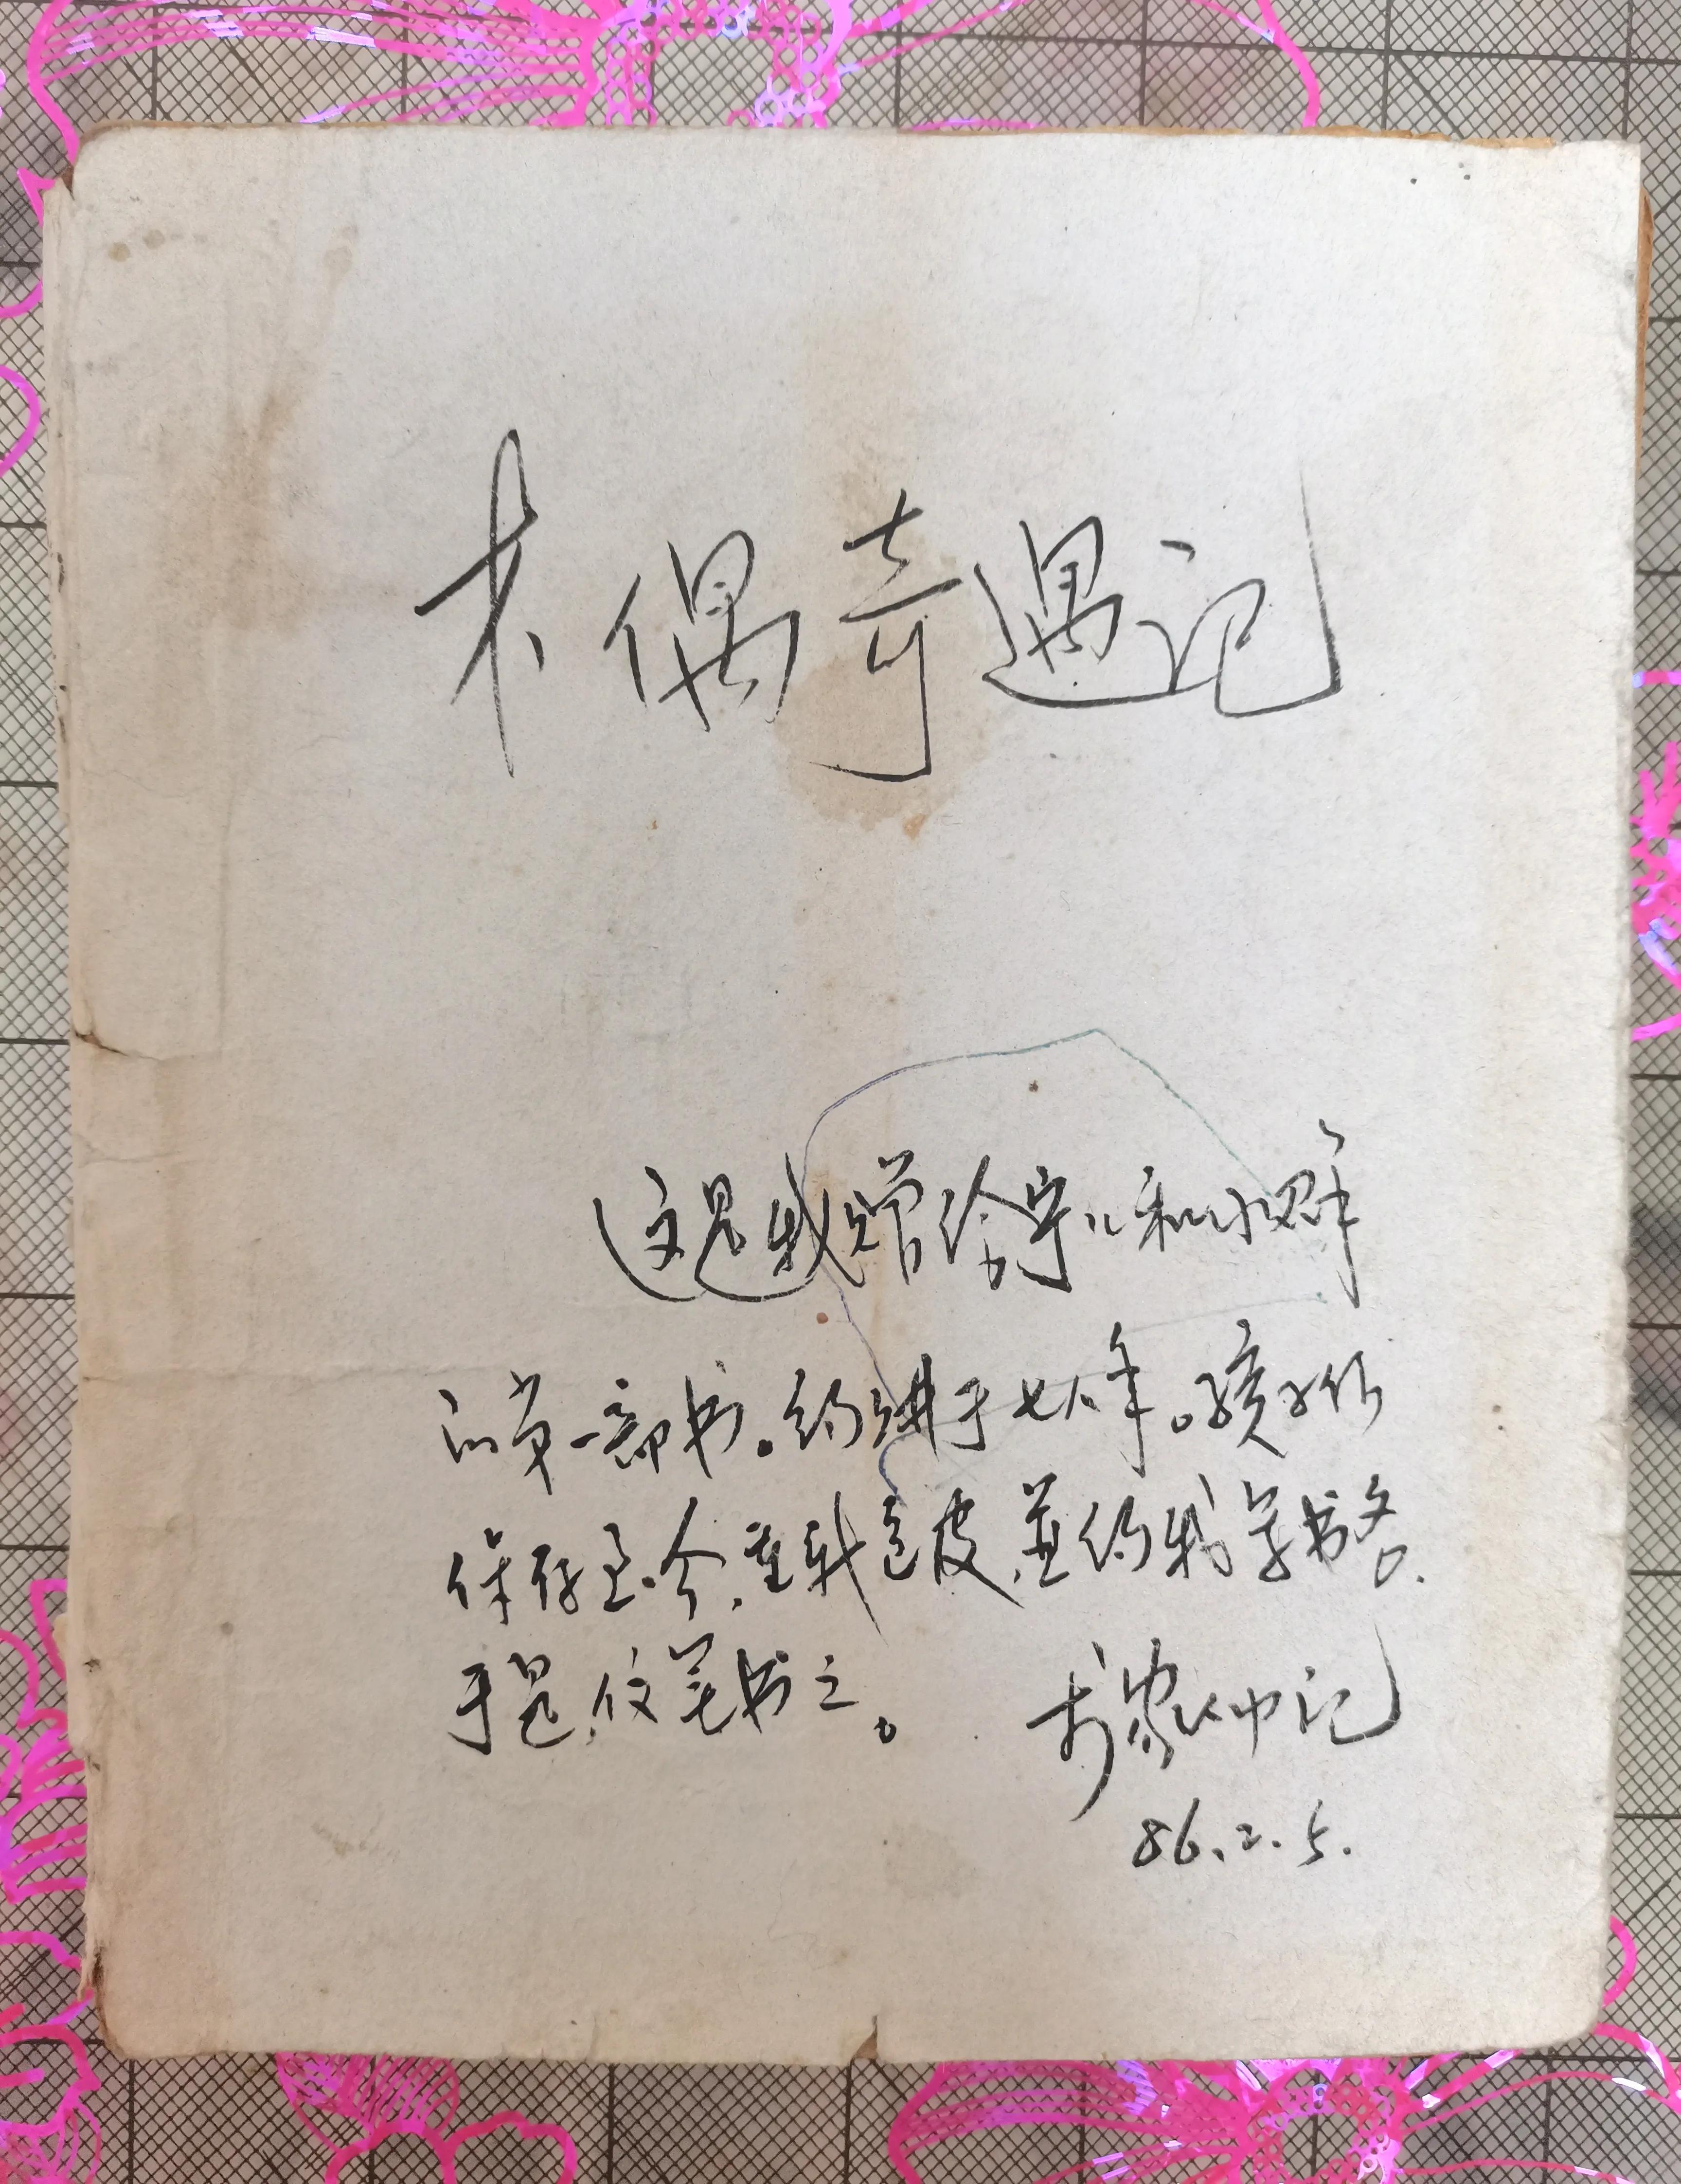 木偶奇遇记
这是我赠给宁儿和小群
的第一部书。约讲于七八年。孩子们
保存至今,重新包皮,並约我写书名.
于是,仅笔书之。 记
86.2.5.